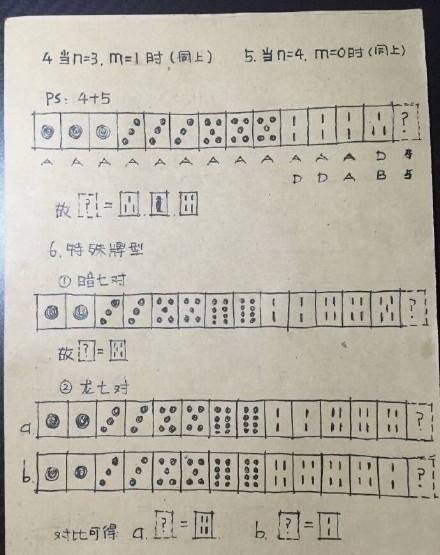 4 当n=3, m=1时(同上) 5. 当n=4. m=0时(同上)
PS: 4+5
?
A A A A A A A A A A A A D 4
D D A B 5
故 ? =
6. 特殊牌型
① 暗七对
?
故 ? =
② 龙七对
a. ?
b. ?
对比可得 a. ? = b. ? =